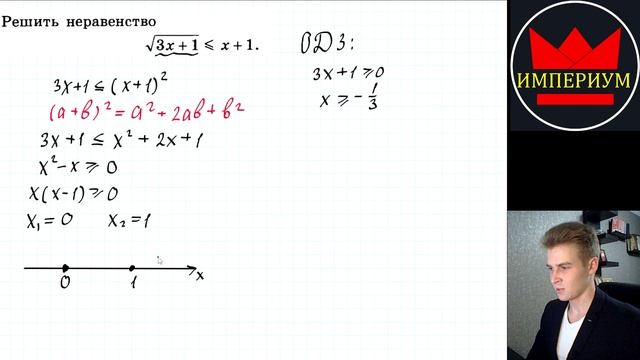 Решить неравенство
√3x + 1 ⩽ x + 1.
ОДЗ:
3x+1 ≥ 0
x ≥ -1/3
3x+1 ≤ (x+1)²
(a+b)² = a² + 2ab + b²
3x+1 ≤ x² + 2x + 1
x² - x ≥ 0
x(x-1) ≥ 0
x₁ = 0 x₂ = 1
0 1 x
ИМПЕРИУМ